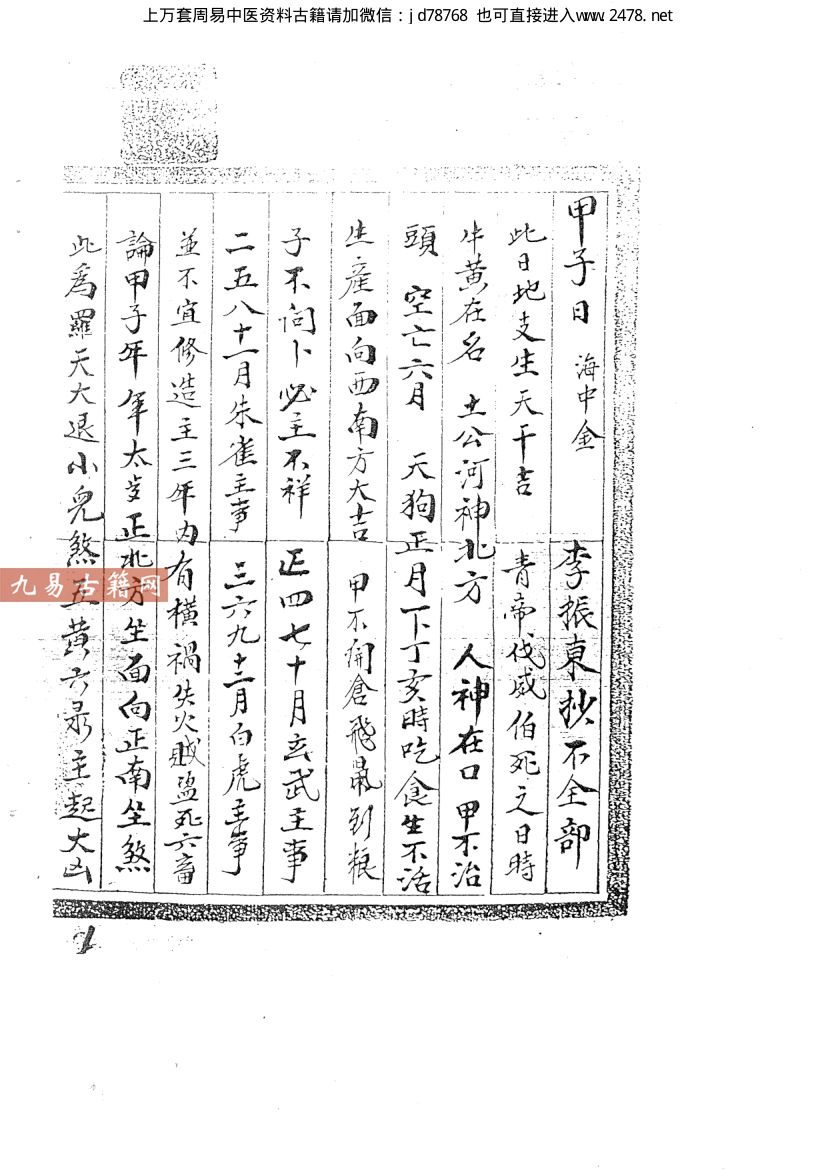 上万套周易中医资料古籍请加微信：jd78768 也可直接进入www.2478.net
甲子日 海中金 李振東抄不全部
此日地支生天干吉 青帝伐威伯死之日時
牛黄在名 土公河神北方 人神在口 甲不治
頭 空亡六月 天狗正月下丁亥時吃食生不活
生產面向西南方大吉 甲不開倉飛鼠到粮
子不问卜必主不祥 正四七十月玄武主事
二五八十一月朱雀主事 三六九十二月白虎主事
並不宜修造主三年内有横禍失火贼盗死六畜
論甲子年年太岁正北方坐面向正南坐煞
此為羅天大退小兒煞五黄六 主起大凶
九易古籍网
1